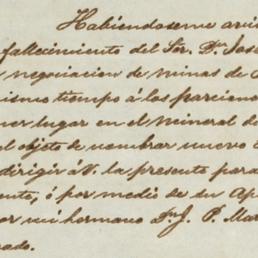 Habiéndoseme avi
fallecimiento del Sor. Dn. José
negociacion de minas de
ismo tiempo á los parcione
ner lugar en el mineral de
l objeto de nombrar nuevo
dirigir á V. la presente para
ento, ó por medio de su Ap
or mi hermano Dn. J. P. Mar
ado.